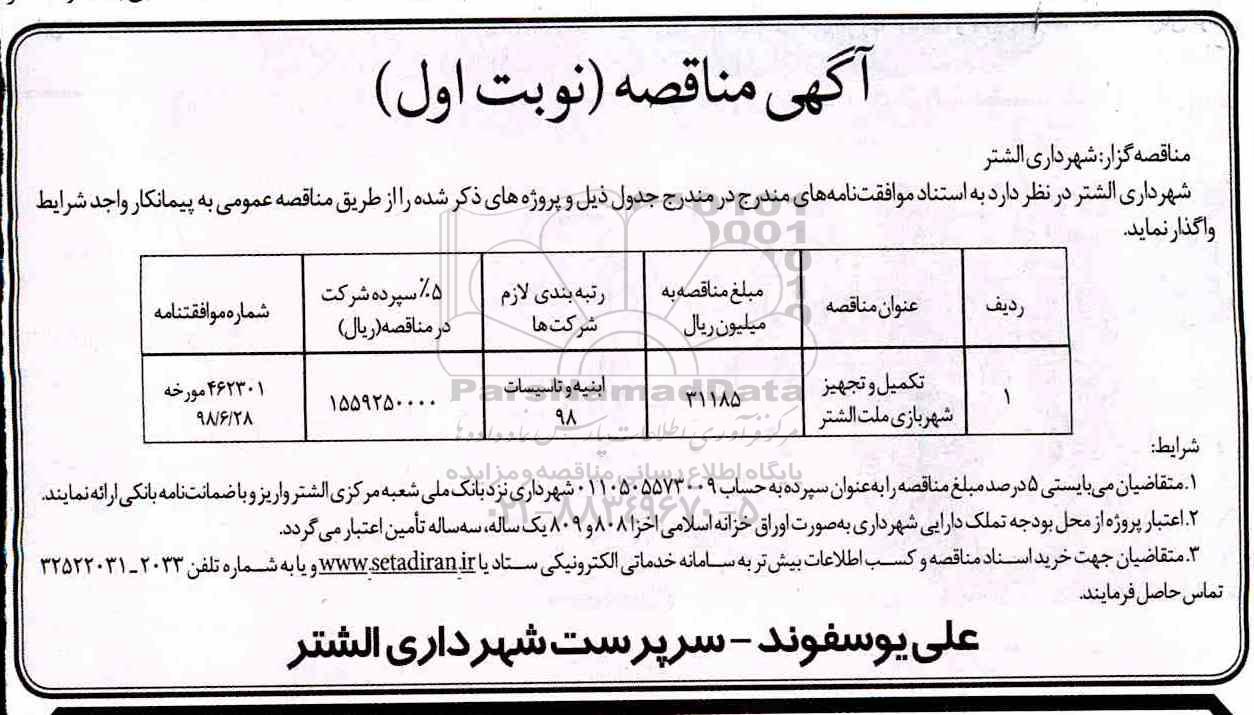 آگهی مناقصه (نوبت اول)
مناقصه‌گزار: شهرداری الشتر
شهرداری الشتر در نظر دارد به استناد موافقت‌نامه‌های مندرج در مندرج جدول ذیل و پروژه های ذکر شده را از طریق مناقصه عمومی به پیمانکار واجد شرایط
واگذار نماید.
ردیف
عنوان مناقصه
مبلغ مناقصه به
میلیون ریال
رتبه بندی لازم
شرکت ها
۵٪ سپرده شرکت
در مناقصه(ریال)
شماره موافقتنامه
۱
تکمیل و تجهیز
شهربازی ملت الشتر
۳۱۱۸۵
ابنیه و تاسیسات
۹۸
۱۵۵۹۲۵۰۰۰۰
۴۶۲۳۰۱ مورخه
۹۸/۶/۲۸
ParsNamadData
مرکز فرآوری اطلاعات پارس نماد داده ها
پایگاه اطلاع رسانی مناقصه و مزایده
۰۲۱-۸۸۳۴۹۶۷۰-۵
شرایط:
۱. متقاضیان می‌بایستی ۵ درصد مبلغ مناقصه را به‌عنوان سپرده به حساب ۰۱۱۰۵۰۵۵۷۳۰۰۹ شهرداری نزد بانک ملی شعبه مرکزی الشتر واریز و با ضمانت‌نامه بانکی ارائه نمایند.
۲. اعتبار پروژه از محل بودجه تملک دارایی شهرداری به‌صورت اوراق خزانه اسلامی اخزا ۸۰۸ و ۸۰۹ یک ساله، سه‌ساله تأمین اعتبار می گردد.
۳. متقاضیان جهت خرید اسناد مناقصه و کسب اطلاعات بیش‌تر به سامانه خدماتی الکترونیکی ستاد یا www.setadiran.ir و یا به شماره تلفن ۲۰۳۳ ـ ۳۲۵۲۲۰۳۱
تماس حاصل فرمایند.
علی یوسفوند - سرپرست شهرداری الشتر